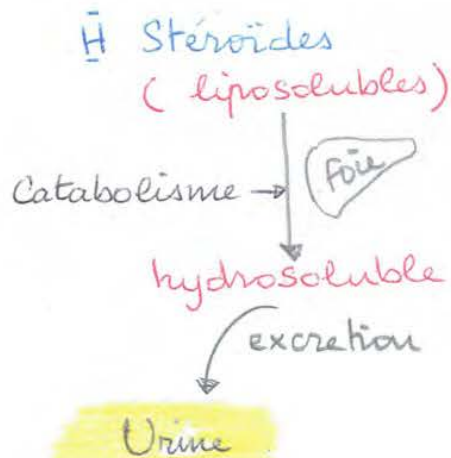 H̱̄ Stéroïdes
( liposolubles)
Catabolisme →
Foie
hydrosoluble
excretion
Urine